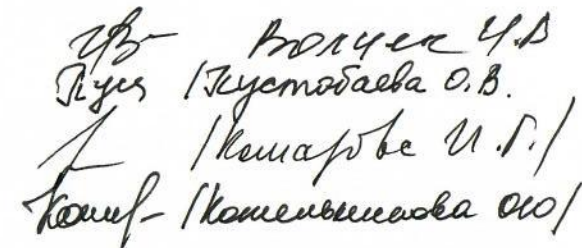 Волчек И.В
Кустобаева О.В.
/Комарова И.Г./
/Котельникова ОЮ/